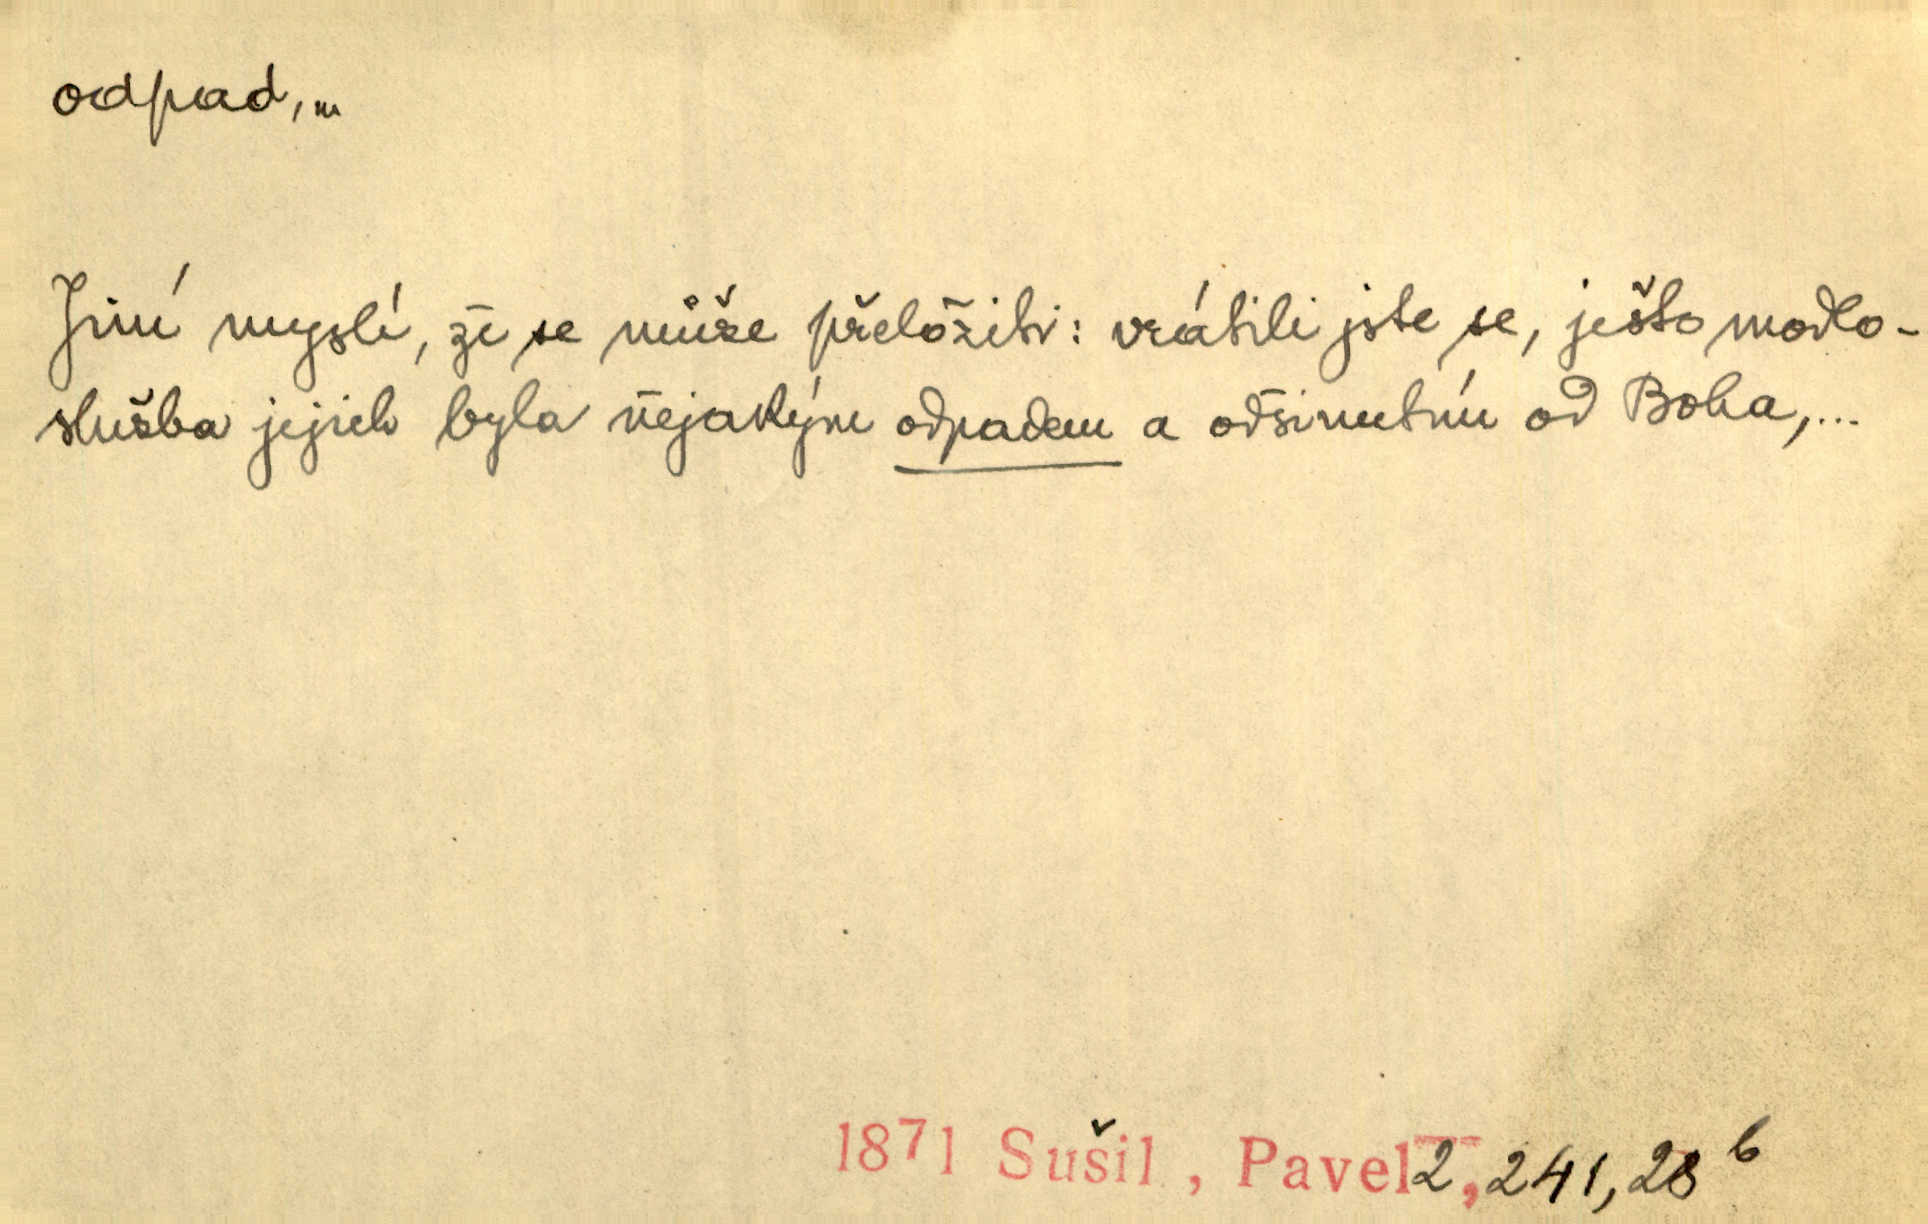 odpad, m
Jiní myslí, že se může přeložiti: vrátili jste se, ješto modlo-
služba jejich byla nějakým odpadem a odšinutím od Boha,...
1871 Sušil, Pavel 2, 241, 28 b